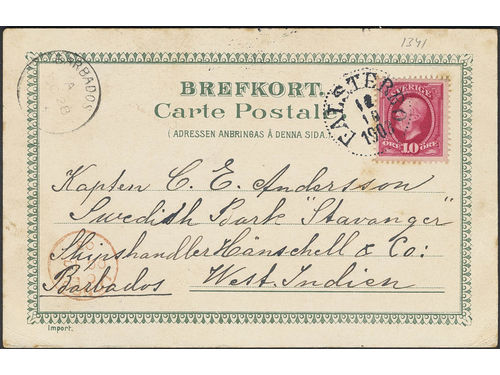 1341
BARBADOS
BREFKORT.
Carte Postale
(ADRESSEN ANBRINGAS Å DENNA SIDA.)
FALSTERBO
SVERIGE
10 ÖRE
Kapten C. E. Andersson
Swedish Bark "Stavanger"
Shipshandler Hänschell & Co:
Barbados West. Indien
Import.